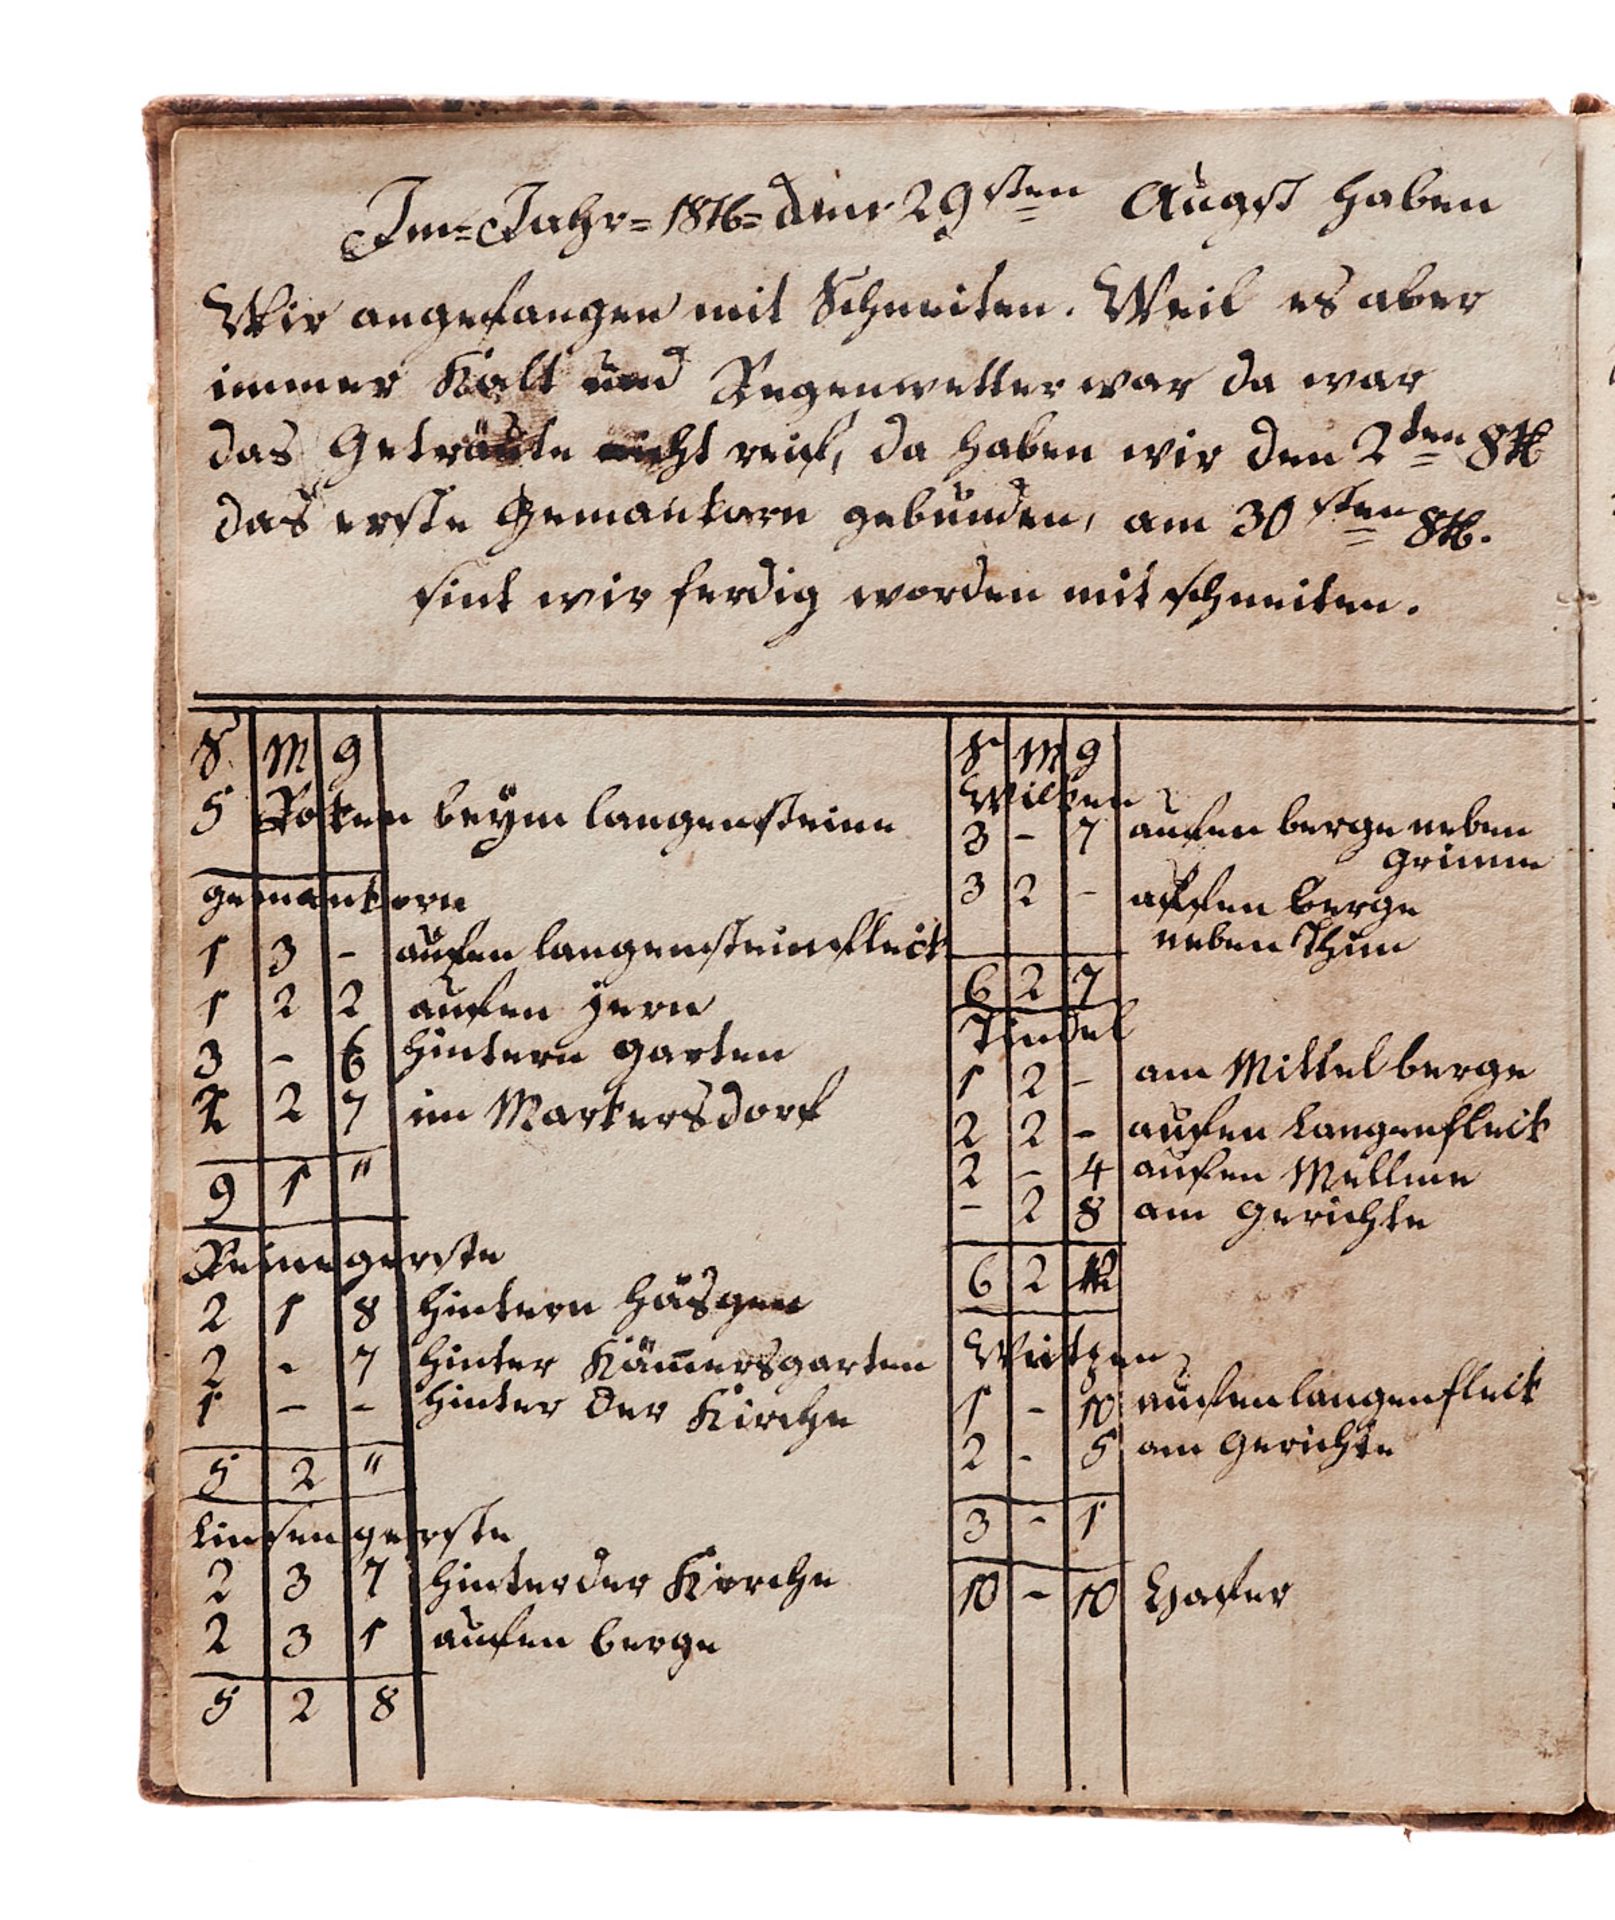 Im Jahr = 1816 = den 29sten Augst haben
Wir angefangen mit Schneiten. Weil es aber
immer Kalt und Regenwetter war da war
das Geträute nicht reif, da haben wir den 2ten 8tb
das erste Gemankorn gebunden, am 30sten 8tb.
sint wir ferdig worden mit schneiten.
S M g
5 beym langensteine
gemankorn
1 3 - aufen langensteinfleck
1 2 2 aufen
3 - 6 hintern garten
2 2 7 im Markersdorf
9 1 "
Reinegerste
2 1 8 hintern Häsgen
2 - 7 hinter Kämersgarten
1 - - hinter der Kirche
5 2 "
Linsengerste
2 3 7 hinter der Kirche
2 3 1 aufen berge
5 2 8
S M g
Wilken
3 - 7 aufen berge neben
grimm
3 2 - auffen berge
neben Thun
6 2 7
Dinkel
1 2 - am Mittelberge
2 2 - aufen Langenfleck
2 - 4 aufen
- 2 8 am gerichte
6 2
Weitzen
1 - 10 aufen langenfleck
2 - 5 am gerichte
3 - 1
10 - 10 Hafer